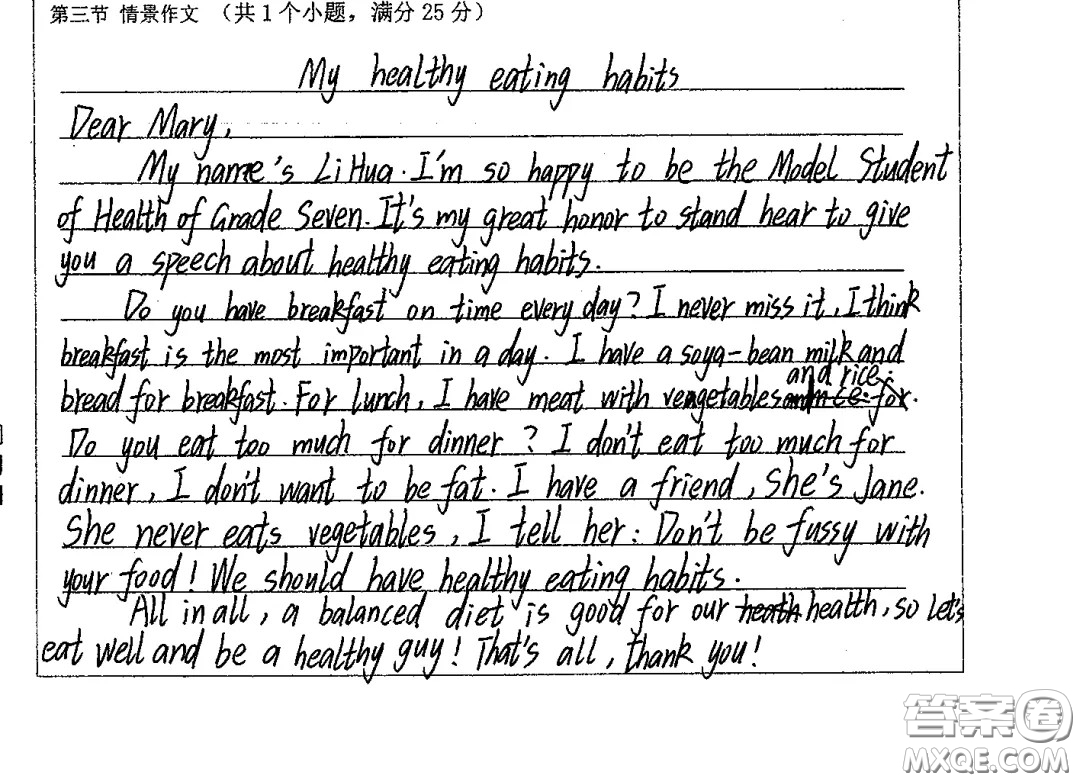 第三节 情景作文 （共1个小题，满分25分）
My healthy eating habits
Dear Mary,
My name's Li Hua. I'm so happy to be the Model Student
of Health of Grade Seven. It's my great honor to stand hear to give
you a speech about healthy eating habits.
Do you have breakfast on time every day? I never miss it, I think
breakfast is the most important in a day. I have a soya-bean milk and
and rice.
bread for breakfast. For lunch, I have meat with vengetables for.
Do you eat too much for dinner? I don't eat too much for
dinner, I don't want to be fat. I have a friend, She's Jane.
She never eats vegetables, I tell her: Don't be fussy with
your food! We should have healthy eating habits.
All in all, a balanced diet is good for our heath health, so Let's
eat well and be a healthy guy! That's all, thank you!
答案圈
MXQE.COM